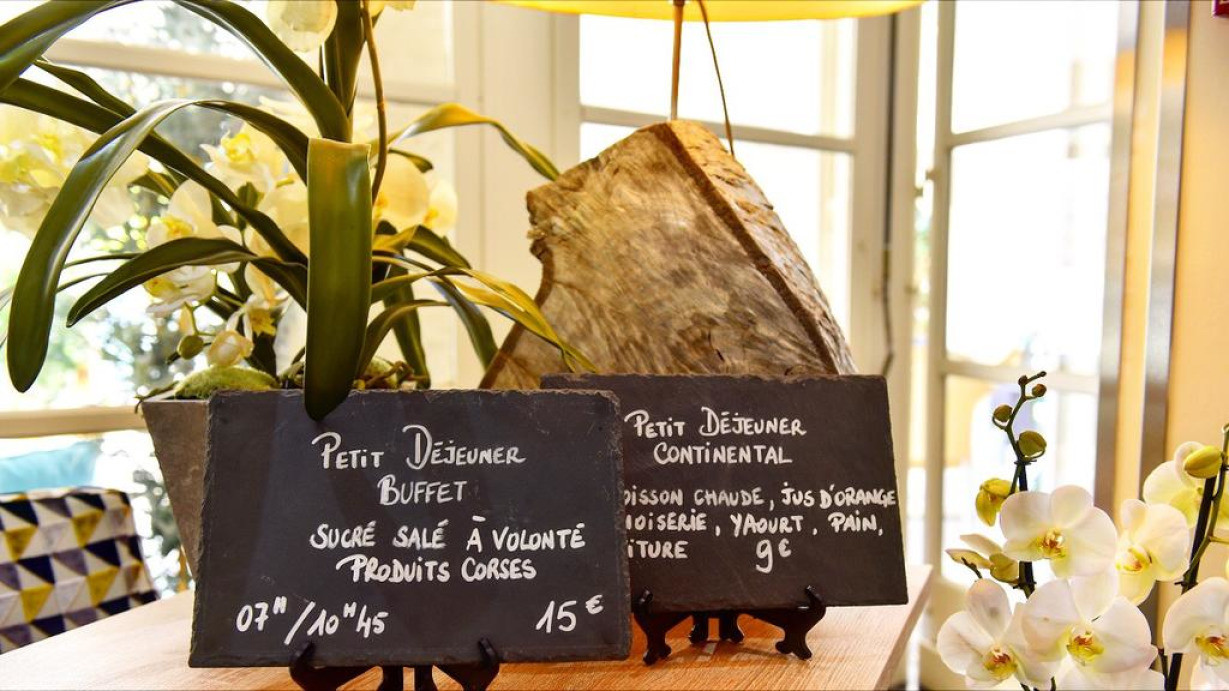 PETIT DÉJEUNER
BUFFET
SUCRÉ SALÉ À VOLONTÉ
PRODUITS CORSES
07H/10H45 15€
PETIT DÉJEUNER
CONTINENTAL
OISSON CHAUDE, JUS D'ORANGE
NOISERIE, YAOURT, PAIN,
ITURE 9€